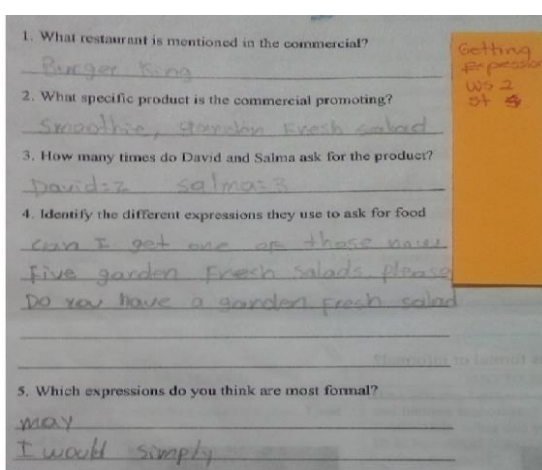 1. What restaurant is mentioned in the commercial?
Burger King
2. What specific product is the commercial promoting?
Smoothie, Garden Fresh salad
3. How many times do David and Salma ask for the product?
David: 2 salma: 3
4. Identify the different expressions they use to ask for food
can I get one of those
Five garden Fresh Salads, please
Do you have a garden fresh salad
5. Which expressions do you think are most formal?
may
I would simply
Getting
Expression
WS 2
St 4